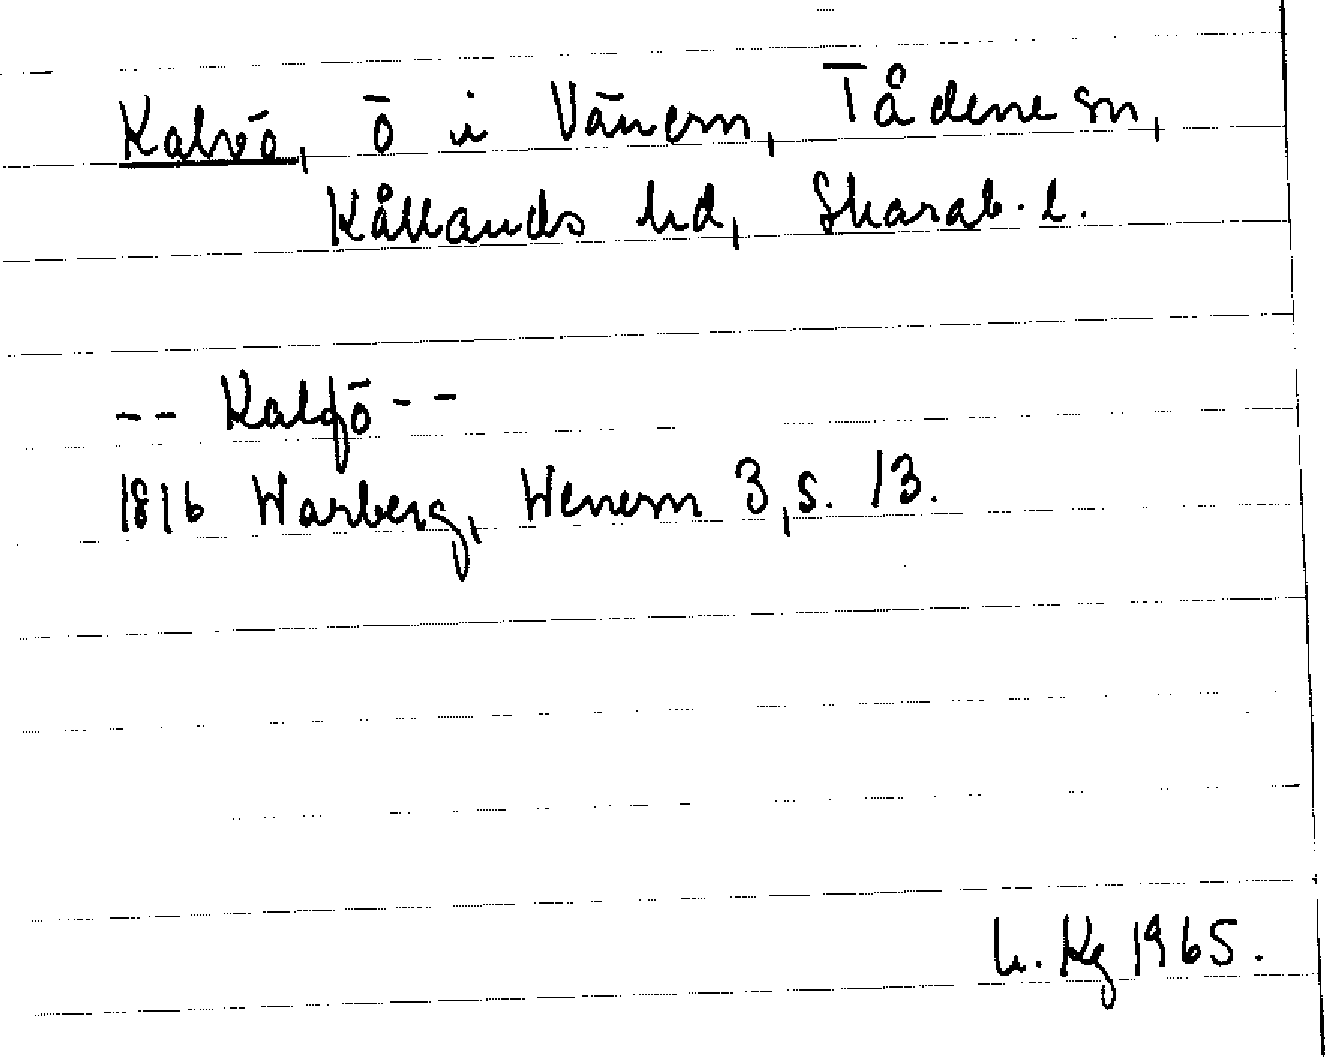 Kalvö, ö i Vänern, Tådene sn,
Kållands hd, Skarab. l.
-- Kalfö --
1816 Warberg, Wenern 3, s. 13.
h. Kg 1965.